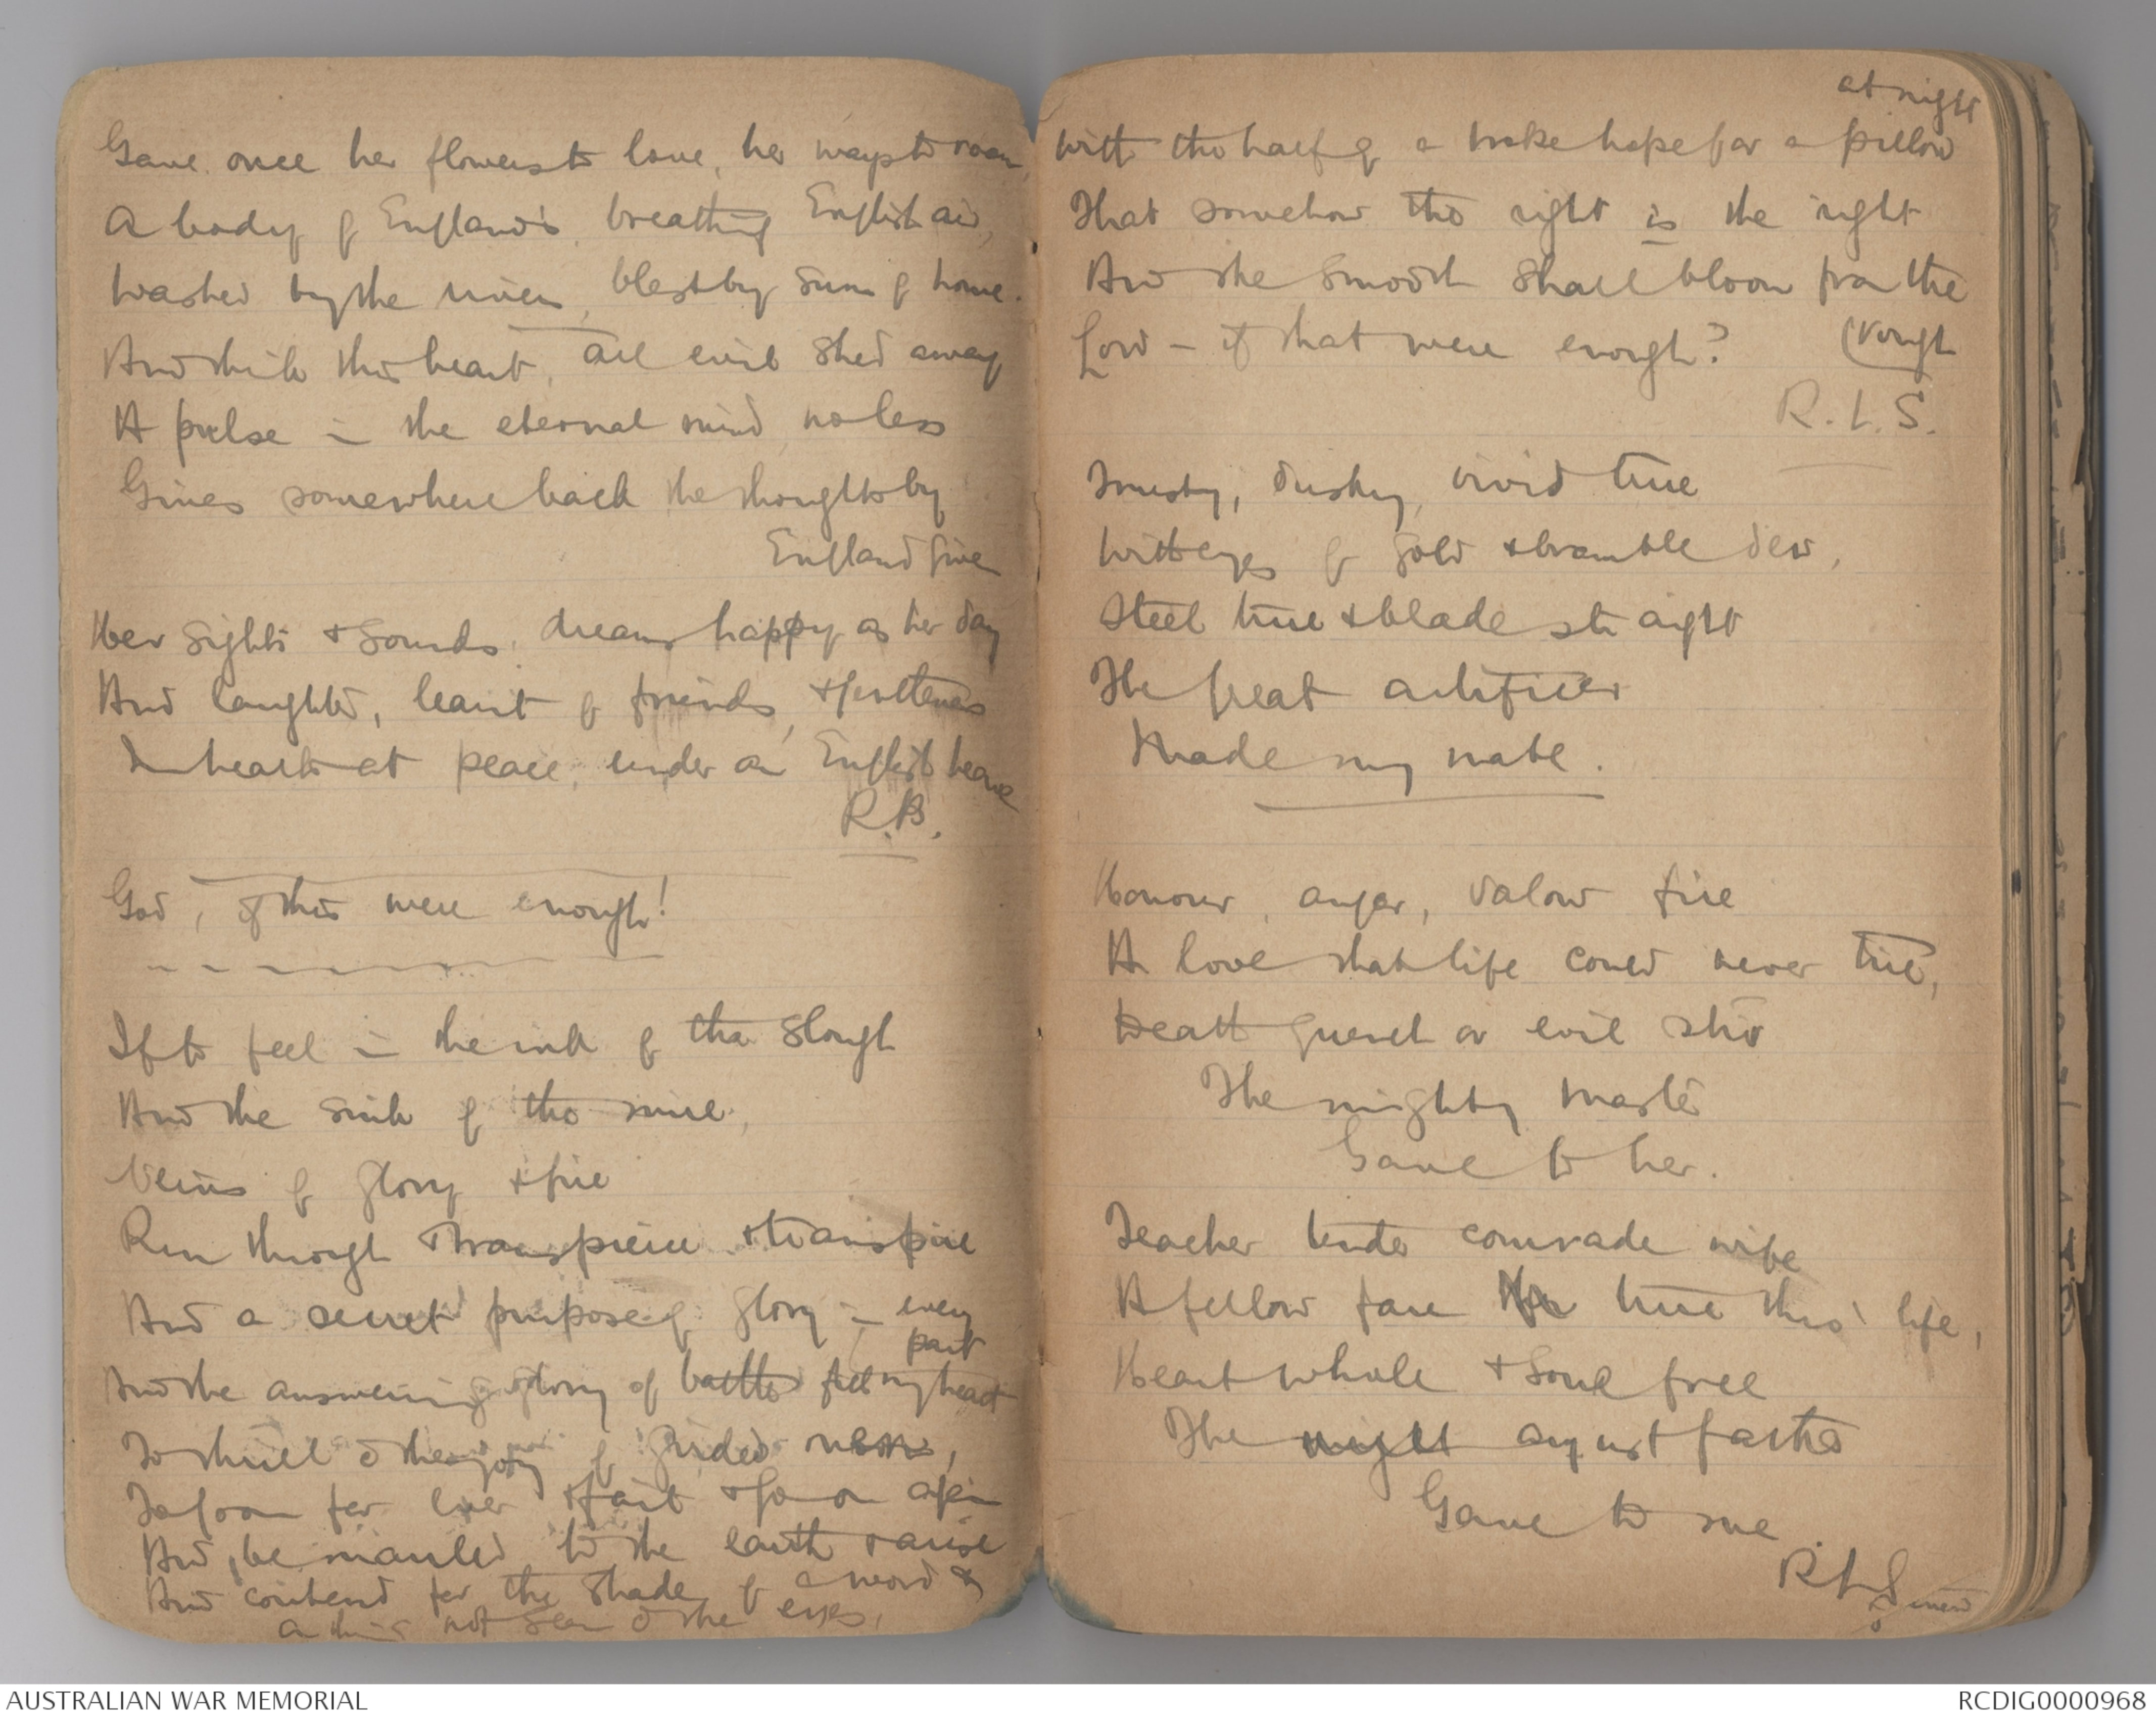 Gave once her flowers to love, her ways to roam,
A body of England's, breathing English air,
Washed by the rivers, blest by suns of home.
And think this heart, all evil shed away
A pulse in the eternal mind, no less
Gives somewhere back the thoughts by
England given
Her sights & sounds, dreams happy as her day
And laughter, learnt of friends, & gentleness
In hearts at peace, under an English heaven
R.B.
God, if this were enough!
If to feel in the ink of the slough
And the sink of the mire,
Veins of glory & fire
Run through & transpierce & transpire
And a secret purpose of glory in every
part
And the answering glory of battle fill my heart
To thrill c the joy of girded men,
To go on for ever & fail & go on again
And be mauled to the earth & arise
And contend for the shade of a word &
a thing not seen c the eyes,
at night
With the half of a broke hope for a pillow
That somehow the right is the right
And the smooth shall bloom from the
Lord - if that were enough? (rough
R.L.S.
Trusty, dusky, vivid true
With eyes of gold & bramble dew,
Steel true & blade straight
The great artificer
Made my mate.
Honour, anger, valour fire
A love that life could never tire,
Death quench or evil stir
The mighty master
Gave to her.
Teacher tender comrade wife
A fellow fare true thro' life,
Heart whole & soul free
The might august father
Gave to me.
R.L.S
AUSTRALIAN WAR MEMORIAL
RCDIG0000968